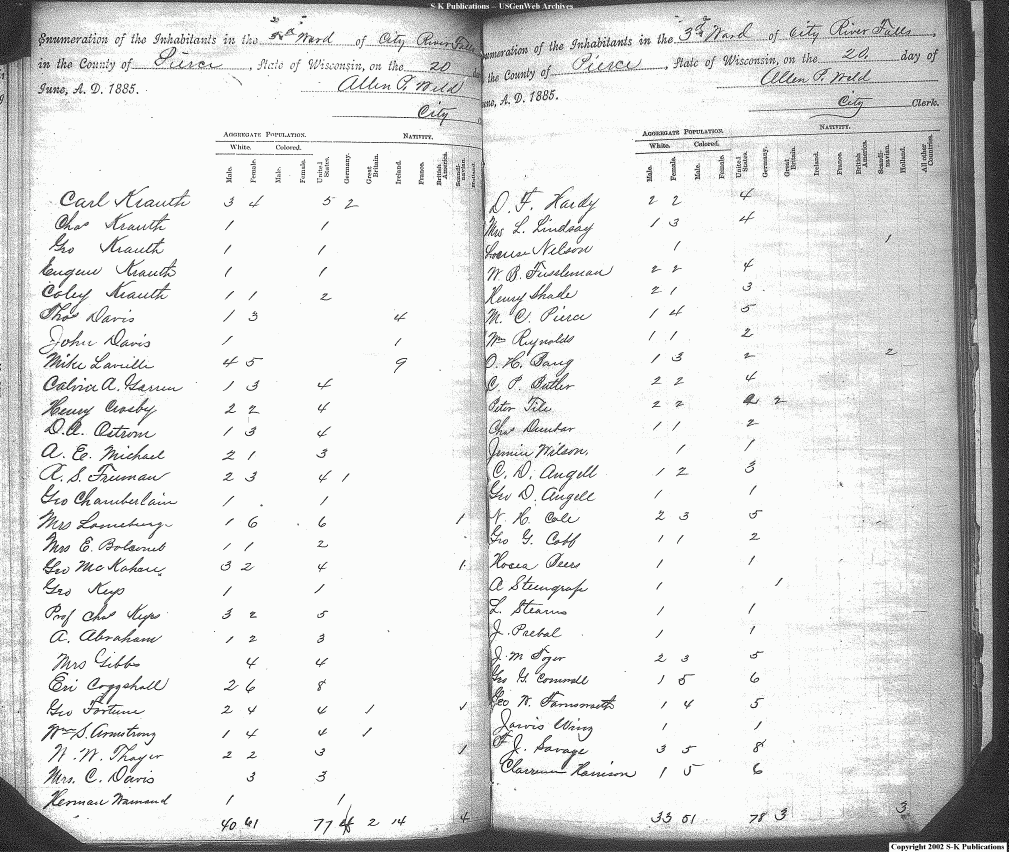 S-K Publications -- USGenWeb Archives
Enumeration of the Inhabitants in the 3rd Ward of City River Falls
in the County of Pierce, State of Wisconsin, on the 20
June, A. D. 1885. Allen P. Weld
City
AGGREGATE POPULATION. NATIVITY.
White. Colored.
Male. Female. Male. Female. United States. Germany. Great Britain. Ireland. France. British America. Scandi-navian. Holland.
Carl Krauth 3 4 5 2
Chas Krauth 1 1
Geo Krauth 1 1
Eugene Krauth 1 1
Coley Krauth 1 1 2
Thos Davis 1 3 4
John Davis 1 1
Mike Laville 4 5 9
Calvin A. 1 3 4
Henry Crosby 2 2 4
D.A. Ostrom 1 3 4
A. E. Michael 2 1 3
A. S. Freeman 2 3 4 1
Geo Chamberlain 1 1
Mrs 1 6 6 1
Mrs E. 1 1 2
Geo 3 2 4 1
Geo Keys 1 1
Prof Chas Keys 3 2 5
A. Abraham 1 2 3
Mrs Gibbs 4 4
Eri Coggshall 2 6 8
Geo Fortune 2 4 4 1 1
Wm S. Armstrong 1 4 4 1
N. W. Thayer 2 2 3 1
Mrs. C. Davis 3 3
Herman 1 1
40 61 77 4 2 14 4
Enumeration of the Inhabitants in the 3rd Ward of City River Falls,
the County of Pierce, State of Wisconsin, on the 20. day of
June, A. D. 1885. Allen P. Weld
City Clerk.
AGGREGATE POPULATION. NATIVITY.
White. Colored.
Male. Female. Male. Female. United States. Germany. Great Britain. Ireland. France. British America. Scandi-navian. Holland. All other Countries.
D. F. Hardy 2 2 4
Mrs L. Lindsay 1 3 4
Louise Nelson 1 1
W. B. Fussleman 2 2 4
Henry Shade 2 1 3
M. C. Pierce 1 4 5
Wm Reynolds 1 1 2
O. H. Bang 1 3 2 2
C. P. Butler 2 2 4
Peter 2 2 2 2
Chas Dunbar 1 1 2
Wilson, 1 1
C. D. Angell 1 2 3
Geo D. Angell 1 1
N. H. Cole 2 3 5
Geo G. Cobb 1 1 2
Hosea Beers 1 1
A Steingraf 1 1
L. Stearns 1 1
J. 1 1
J. M 2 3 5
Geo G. 1 5 6
Geo W. Farnsworth 1 4 5
Jarvis Wing 1 1
F J. Savage 3 5 8
Clarence Harrison 1 5 6
33 51 78 3 3
Copyright 2002 S-K Publications